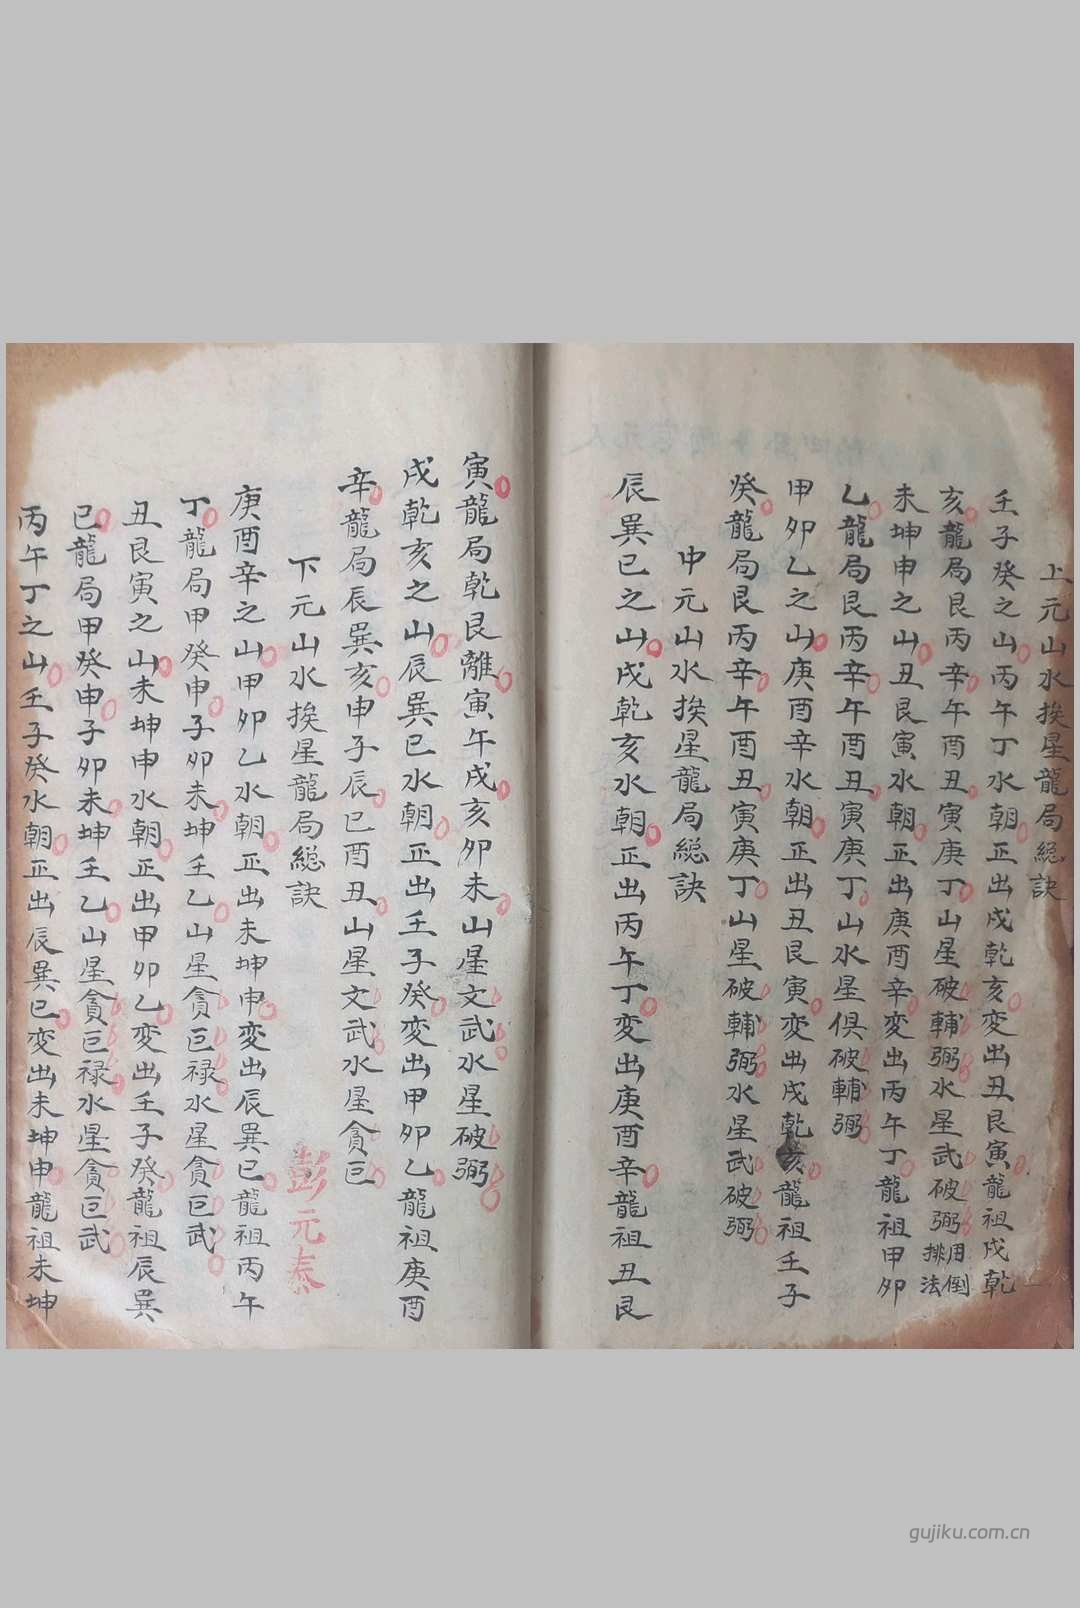 上元山水挨星龍局總訣
壬子癸之山丙午丁水朝正出戌乾亥变出丑艮寅龍祖戌乾
亥龍局艮丙辛午酉丑寅庚丁山星破輔弼水星武破弼用倒排法
未坤申之山丑艮寅水朝正出庚酉辛变出丙午丁龍祖甲卯
乙龍局艮丙辛午酉丑寅庚丁山水星俱破輔弼
甲卯乙之山庚酉辛水朝正出丑艮寅变出戌乾亥龍祖壬子
癸龍局艮丙辛午酉丑寅庚丁山星破輔弼水星武破弼
中元山水挨星龍局総訣
辰巽巳之山戌乾亥水朝正出丙午丁变出庚酉辛龍祖丑艮
寅龍局乾艮離寅午戌亥卯未山星文武水星破弼
戌乾亥之山辰巽巳水朝正出壬子癸变出甲卯乙龍祖庚酉
辛龍局辰巽亥申子辰巳酉丑山星文武水星貪巨
下元山水挨星龍局総訣
彭元泰
庚酉辛之山甲卯乙水朝正出未坤申变出辰巽巳龍祖丙午
丁龍局甲癸申子卯未坤壬乙山星貪巨禄水星貪巨武
丑艮寅之山未坤申水朝正出甲卯乙变出壬子癸龍祖辰巽
巳龍局甲癸申子卯未坤壬乙山星貪巨禄水星貪巨武
丙午丁之山壬子癸水朝正出辰巽巳变出未坤申龍祖未坤
gujiku.com.cn